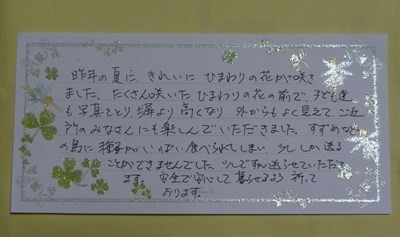 昨年の夏に、きれいに ひまわりの花が咲き
ました。たくさん咲いた ひまわりの花の前で、子ども達
も写真をとり、塀より 高くなり 外からも よく見えて、ご近
所のみなさんにも楽しんでいただきました。すずめなど
の鳥に 種が いっぱい 食べられてしまい、少ししか送る
ことができませんでした。少しですが送らせていただき
ます。安全で安心して暮らせるよう 祈って
おります。